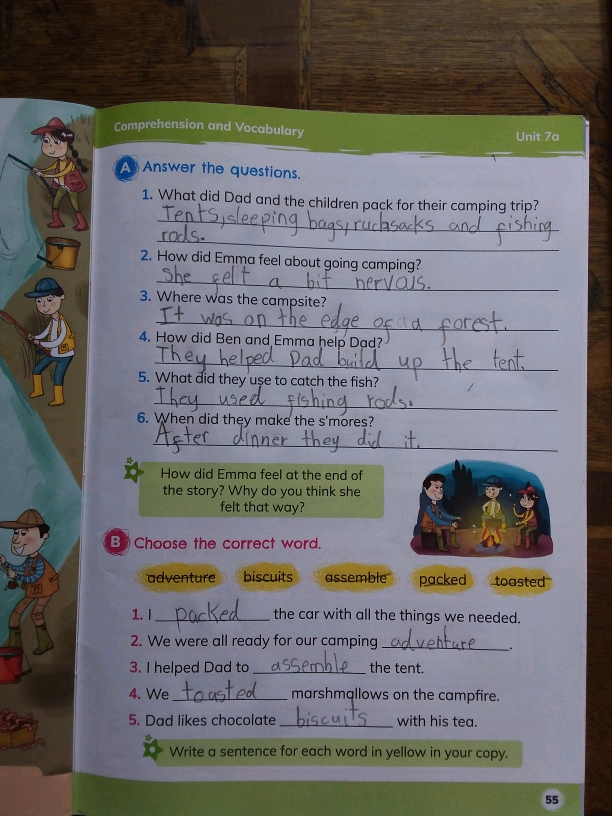 Comprehension and Vocabulary Unit 7a
A Answer the questions.
1. What did Dad and the children pack for their camping trip?
Tents, sleeping bags, rucksacks and fishing
rods.
2. How did Emma feel about going camping?
She felt a bit nervous.
3. Where was the campsite?
It was on the edge of a forest.
4. How did Ben and Emma help Dad?
They helped Dad build up the tent.
5. What did they use to catch the fish?
They used fishing rods.
6. When did they make the s'mores?
After dinner they did it.
How did Emma feel at the end of
the story? Why do you think she
felt that way?
B Choose the correct word.
adventure biscuits assemble packed toasted
1. I packed the car with all the things we needed.
2. We were all ready for our camping adventure.
3. I helped Dad to assemble the tent.
4. We toasted marshmallows on the campfire.
5. Dad likes chocolate biscuits with his tea.
Write a sentence for each word in yellow in your copy.
55